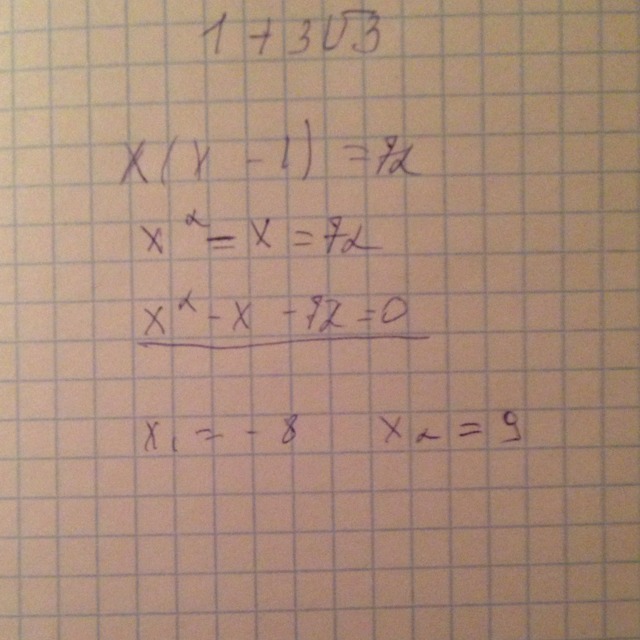 1 + 3√3
x(x - 1) = 72
x² - x = 72
x² - x - 72 = 0
x₁ = - 8 x₂ = 9